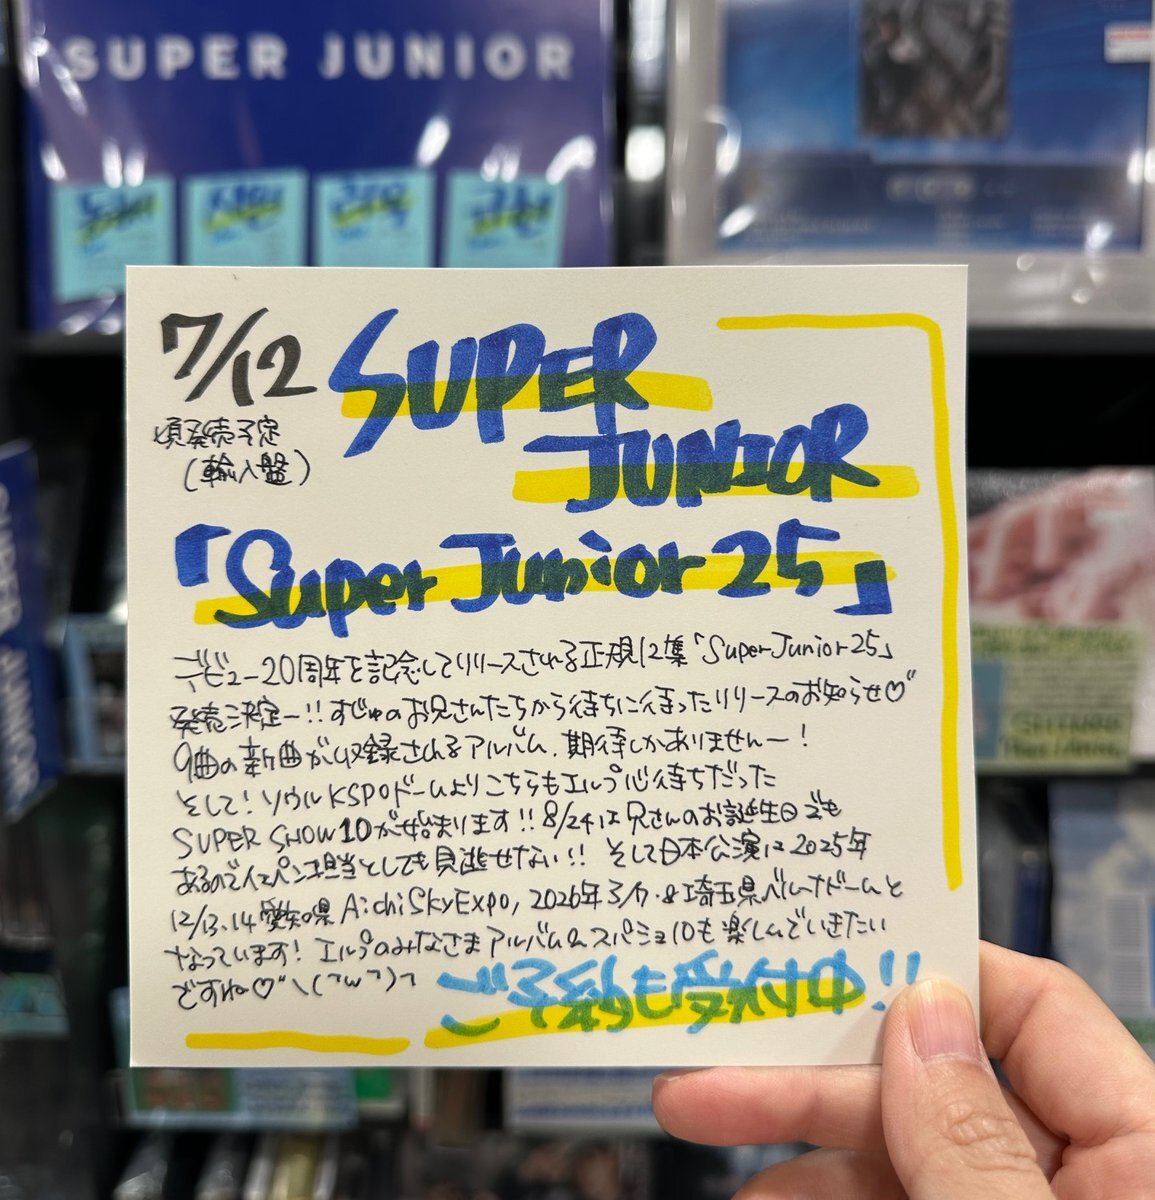 SUPER JUNIOR
동해
신동
려욱
규현
7/12
頃発売予定
(輸入盤)
SUPER
JUNIOR
「Super Junior 25」
デビュー20周年を記念してリリースされる正規12集「Super Junior 25」
発売決定ー!!すじゅのお兄さんたちから待ちに待ったリリースのお知らせ♡"
9曲の新曲が収録されるアルバム、期待しかありませんー!
そして!ソウルKSPOドームよりこちらもエルプ心待ちだった
SUPER SHOW10が始まります!!8/24は兄さんのお誕生日でも
あるのでイェペン担当としても見逃せない!!そして日本公演は2025年
12/13.14愛知県AichiSkyExpo, 2026年3/7.8埼玉県ベルーナドームと
なっています!エルプのみなさまアルバム&スパショ10も楽しんでいきたい
ですね♡"\(⌒ω⌒)⌒
ご予約も受付中!!
SUPER JUNIOR